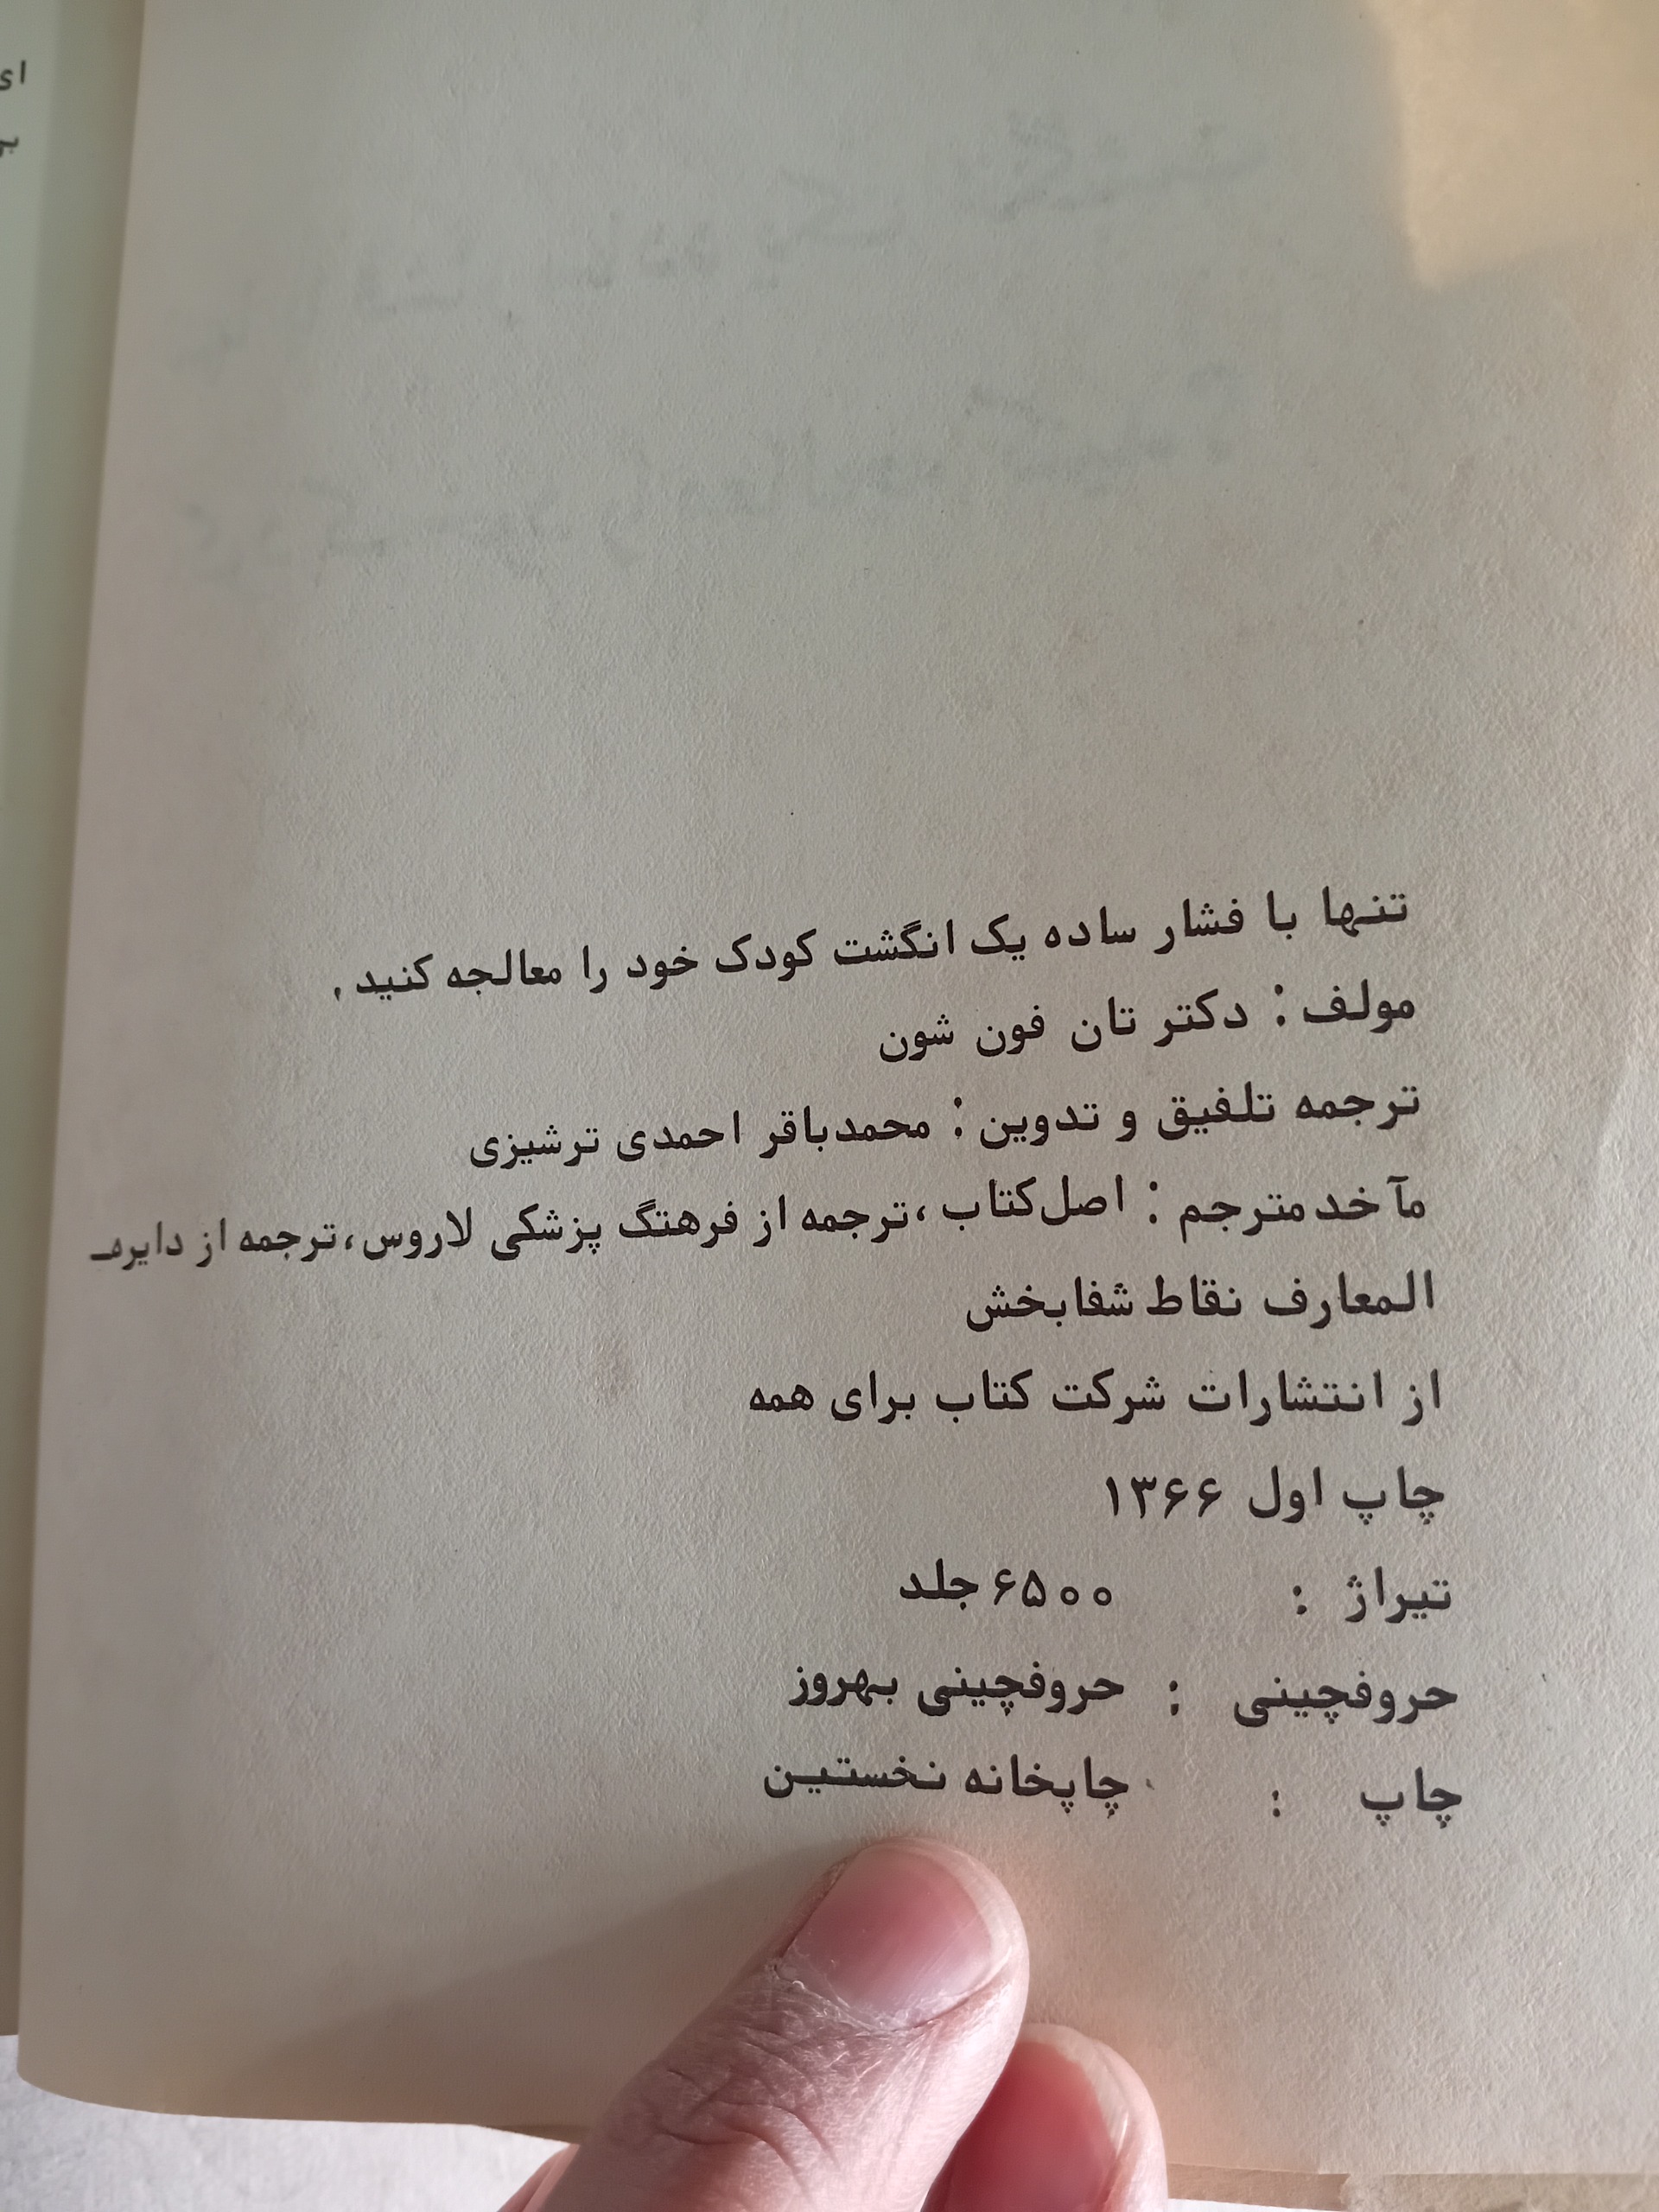 تنها با فشار ساده یک انگشت کودک خود را معالجه کنید.
مولف: دکتر تان فون شون
ترجمه تلفیق و تدوین: محمدباقر احمدی ترشیزی
مآخد مترجم: اصل کتاب، ترجمه از فرهتگ پزشکی لاروس، ترجمه از دایره‌
المعارف نقاط شفابخش
از انتشارات شرکت کتاب برای همه
چاپ اول ۱۳۶۶
تیراژ : ۶۵۰۰ جلد
حروفچینی : حروفچینی بهروز
چاپ : چاپخانه نخستین